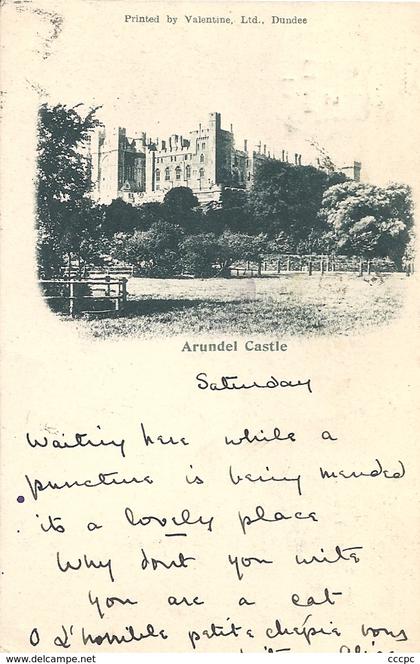 Printed by Valentine, Ltd., Dundee
Arundel Castle
Saturday
Waiting here while a
puncture is being mended
its a lovely place
Why don't you write
you are a cat
O L'horrible petite vous
Alice
cccpc